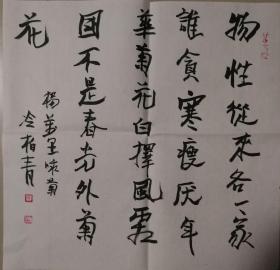 物性從來各一家
誰貪寒瘦厌年
華菊花自擇風霜
國不是春光外菊
花
楊萬里 菊
冷柏青